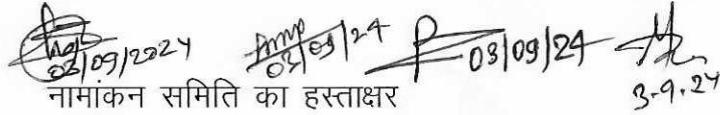 03/09/2024 03/09/24 03/09/24
3.9.24
नामांकन समिति का हस्ताक्षर